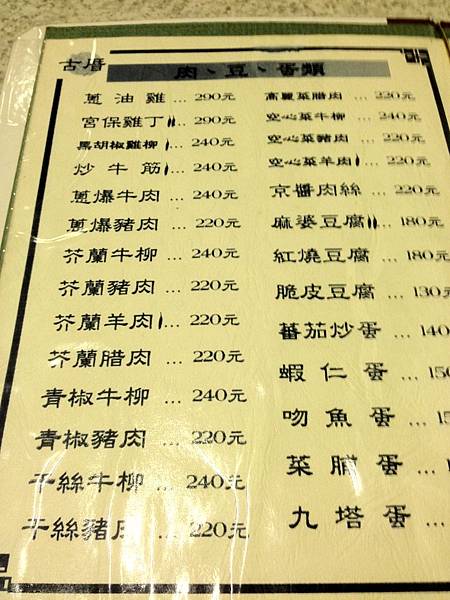 古厝
肉、豆、蛋類
蔥油雞 ... 290元
宮保雞丁 ... 290元
黑胡椒雞柳 ... 240元
炒牛筋 ... 240元
蔥爆牛肉 ... 240元
蔥爆豬肉 ... 220元
芥蘭牛柳 ... 240元
芥蘭豬肉 ... 220元
芥蘭羊肉 ... 220元
芥蘭腊肉 ... 220元
青椒牛柳 ... 240元
青椒豬肉 ... 220元
干絲牛柳 ... 240元
干絲豬肉 ... 220元
高麗菜腊肉 ... 220元
空心菜牛柳 ... 240元
空心菜豬肉 ... 220元
空心菜羊肉 ... 220元
京醬肉絲 ... 220元
麻婆豆腐 ... 180元
紅燒豆腐 ... 180元
脆皮豆腐 ... 130元
蕃茄炒蛋 ... 140
蝦仁蛋 ...
吻魚蛋 ...
菜脯蛋 ...
九塔蛋 ...